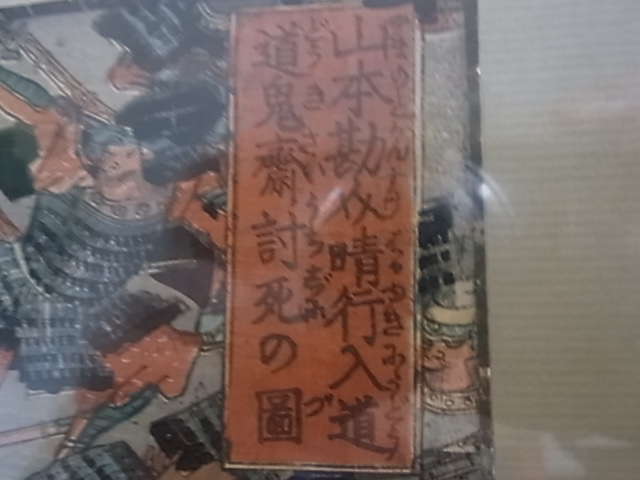 山本勘介晴行入道
道鬼齋討死の圖